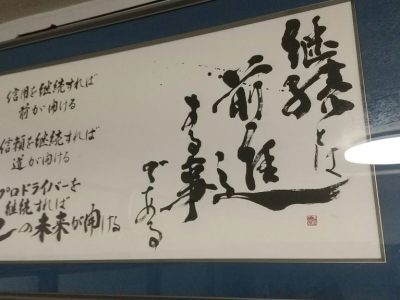 継続とは
前進
する事
である
信用を継続すれば
前が開ける
信頼を継続すれば
道が開ける
プロドライバーを
継続すれば
の未来が開ける